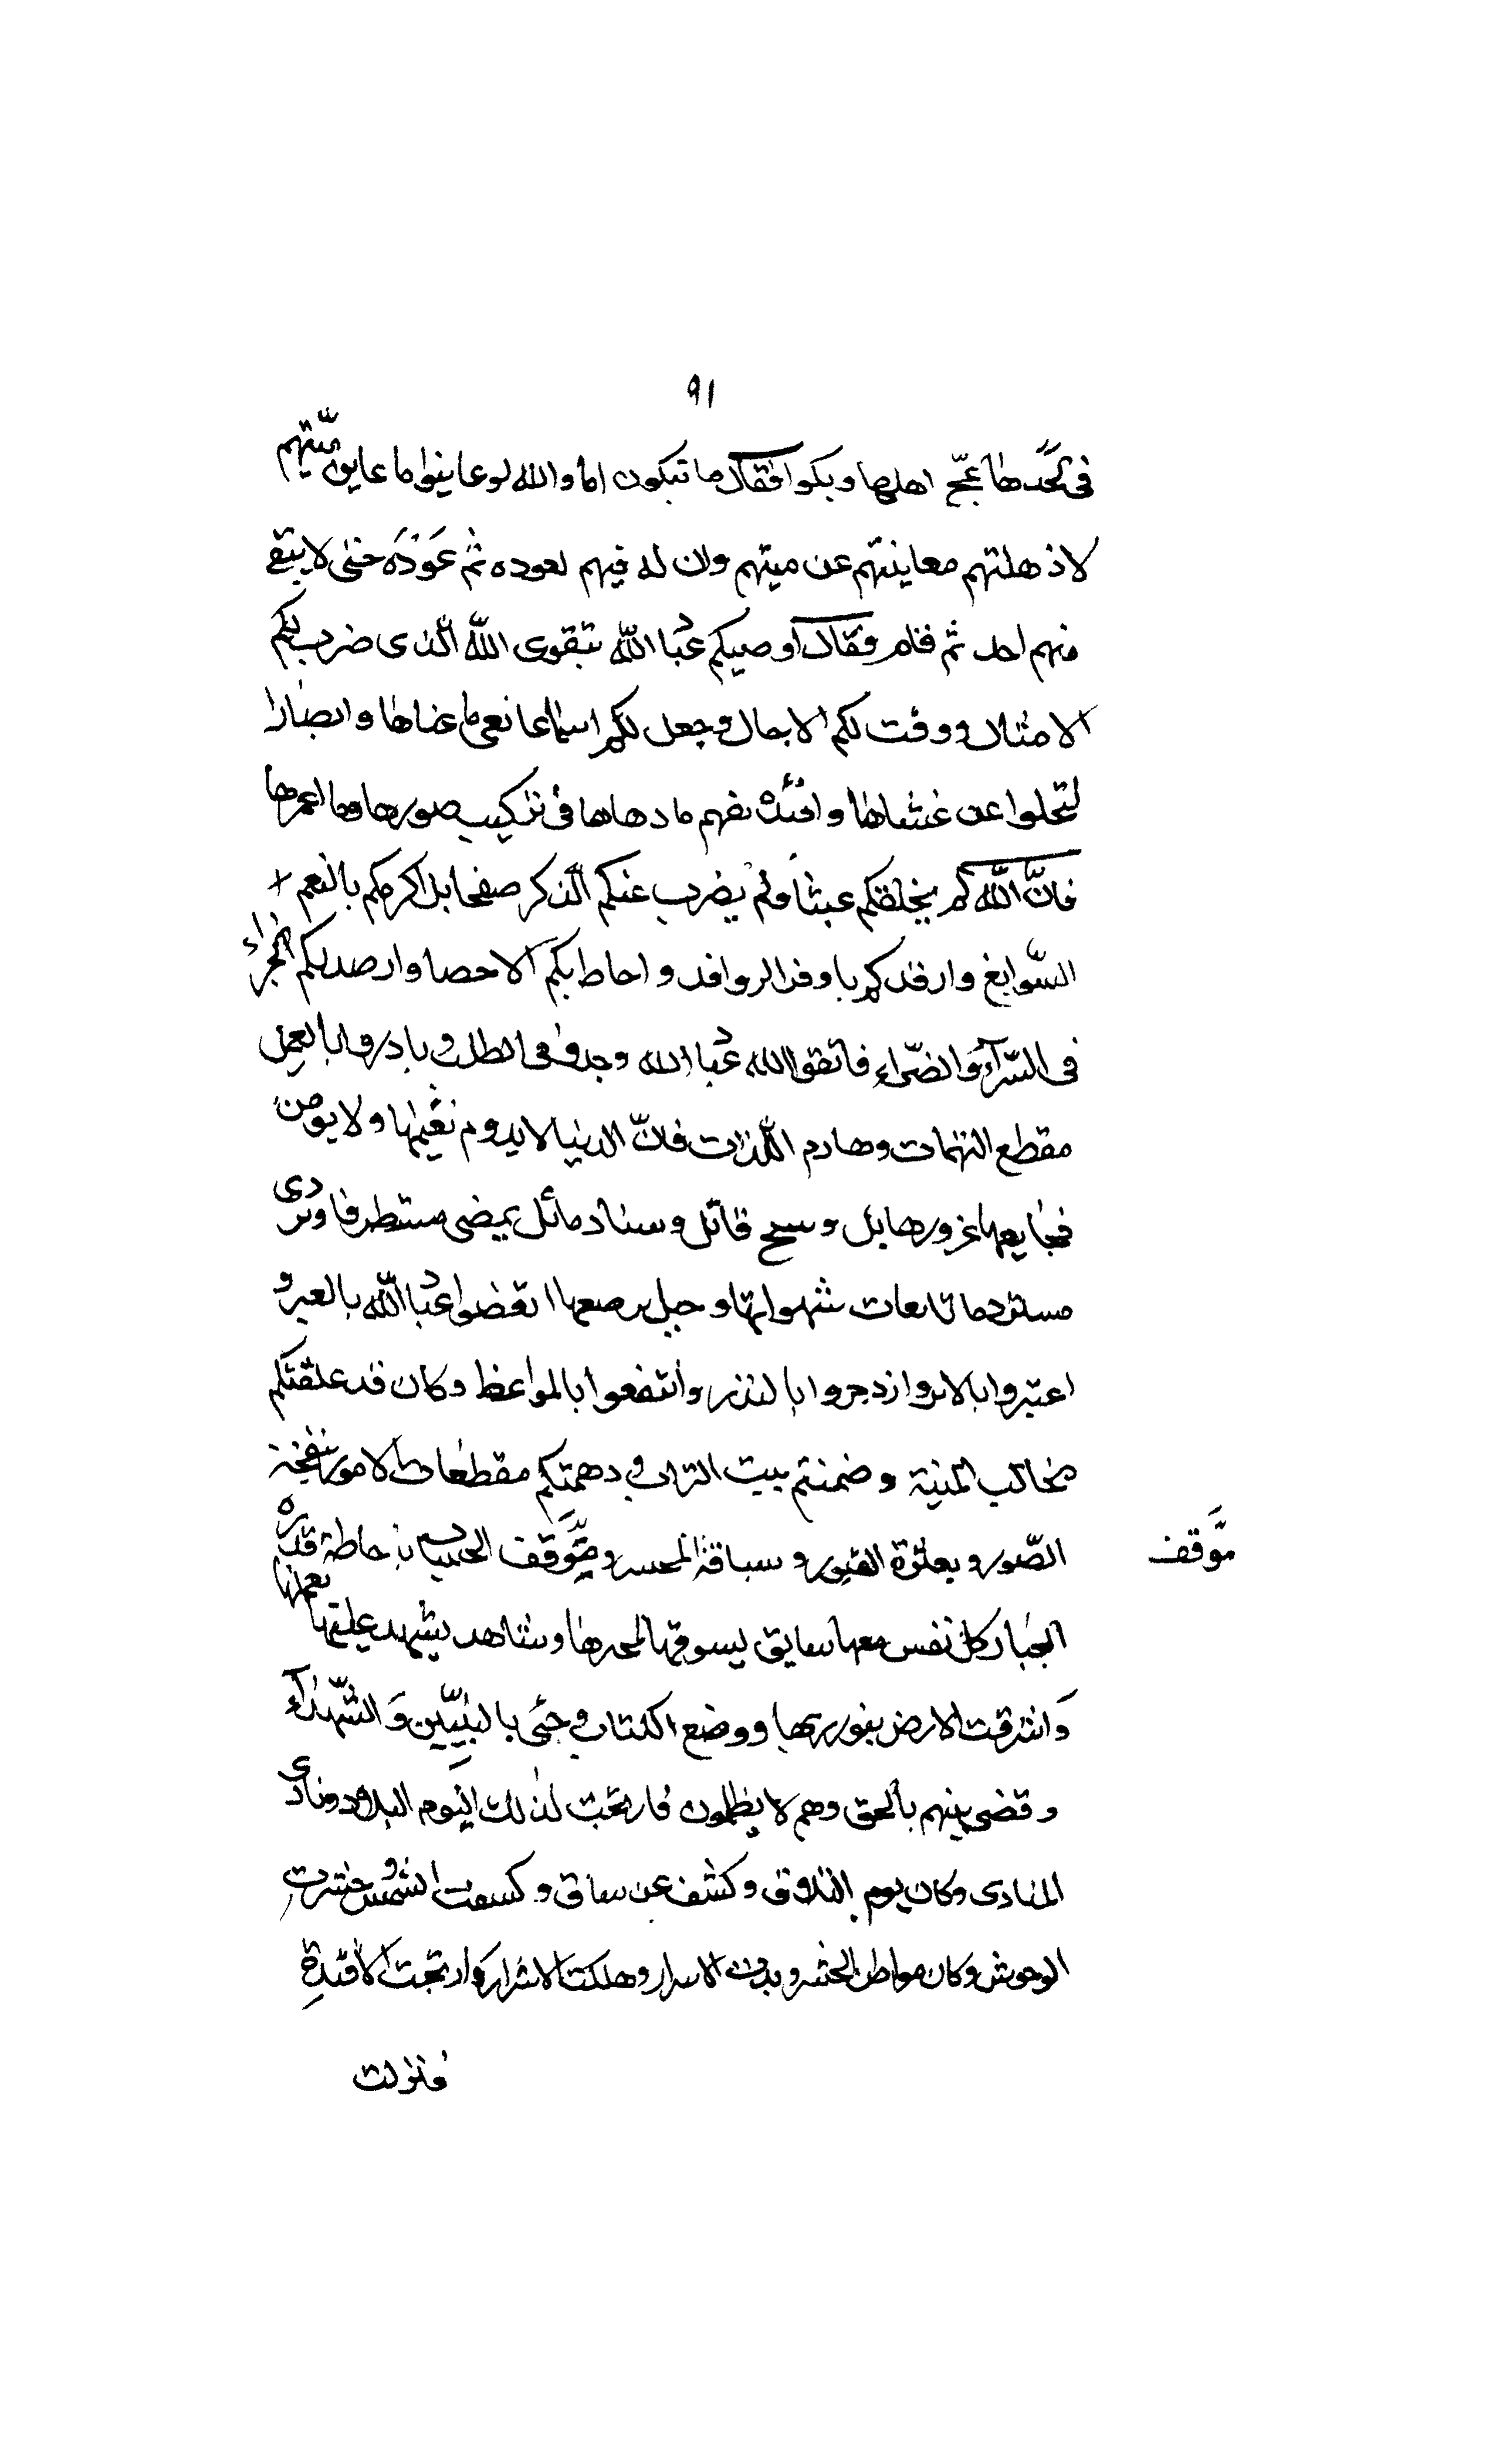 ٩١
فى لحَدها عجّ اهلها وبكوا فقال ما تبكون اما والله لو عاينوا ما عاين ميّتهم
لاذهلتهم معاينتهم عن ميتهم وان له فيهم لعوده ثم عَوْدَه حتى لا يبقى
منهم احد ثم قام وقال اوصيكم عباد الله بتقوى اللّه الّذى ضرب لكم
الامثال ووقت لكم الاجال وجعل لكم اسماعا تعى ما عناها وابصارا
لتجلوا عن غشاها وافئدة تفهم ما دهاها فى تركيب صورها وما اعمرها
فانّ اللّه لم يخلقكم عبثا ولم يضرب عنكم الذكر صفحا بل اكرمكم بالنعم
السّوابغ وارفدكم باوفد الروافد واحاط بكم الاحصا وارصد لكم الجزاء
فى السّرآء والضّراء فاتقوا الله عباد الله وجدوا فى الطلب وبادروا بالعمل
مقطع النهمات وهادم اللّذات فانّ الدنيا لا يدوم نعيمها ولا يومن
فجايعها غرور هايل و قاتل وسناد مائل يمضى مستطرفا وتردى
مستردما شهواتها و اتعضوا عباد اللّه بالعبر و
اعتبروا بالاثر وازدجروا بالنذر وانتفعوا بالمواعظ وكان قد علقتكم
مخالب المنية وضمنتم بيت التراب ودهمتكم مقطعات الامور بنفخة
الصّور وبعثرة القبور وسياقة المحشر وموَقف الحساب باحاطة قدره
مَوقف
الجبار كل نفس معها سايق يسوقها لمحشرها وشاهد يشهد عليها بعملها
وَاشرقت الارض بنور ربها ووضع الكتاب وجئ بالنبيّين وَالشّهدآء
وقضى بينهم بالحق وهم لا يظلمون فارتجت لذلك اليوم البلاد ونادى
المنادى وكان يوم التلاق وكشف عن ساق وكسفت الشمس وحشرت
الوحوش وكان مواطن الحشر وبدت الاسرار وهلكت الاشرار وارتجت الافئدةِ
فنزلت